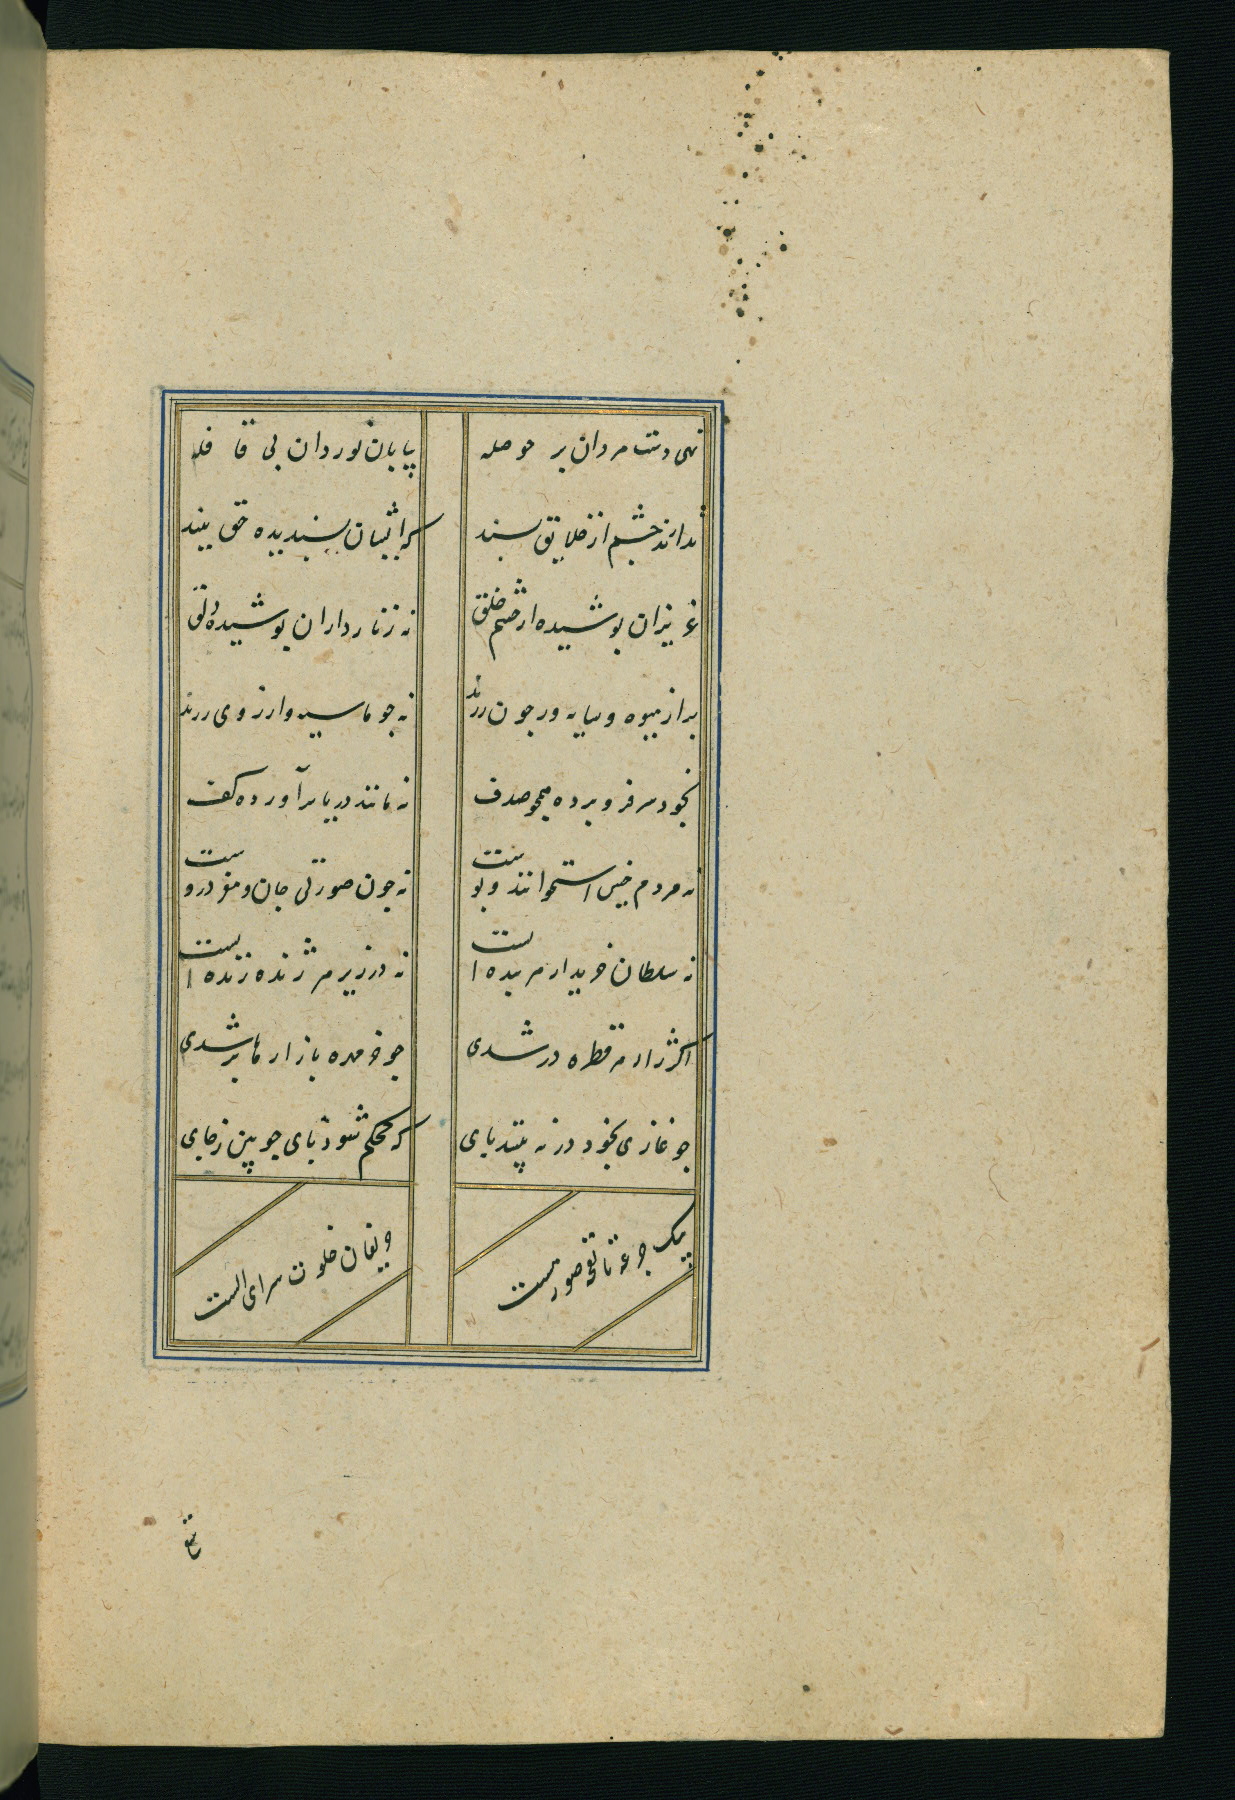 تهی دست مردان پر حوصله
بیابان نوردان بی قافله
ندارند چشم از خلایق پسند
که ایشان پسندیده حق بسند
عزیزان پوشیده از چشم خلق
نه زنار داران پوشیده دلق
پر از میوه و سایه ور جون رزند
نه جو ما سیه و ارزوی رزند
بخود سر فرو برده همجو صدف
نه مانند دریا برآورده کف
نه مردم همین استخوانند و پوست
نه جون صورتی جان و مغز دروست
نه سلطان خریدار هر بنده است
نه در زیر هر ژنده زنده است
اکر ژاله هر قطره در شدی
جو خرمهره بازارها پر شدی
جو غازی بخود در نه بندند پای
که محکم شود پای جوبین ز جای
بیک جرعه تا نفخه صور مست
حریفان خلوت سرای الست